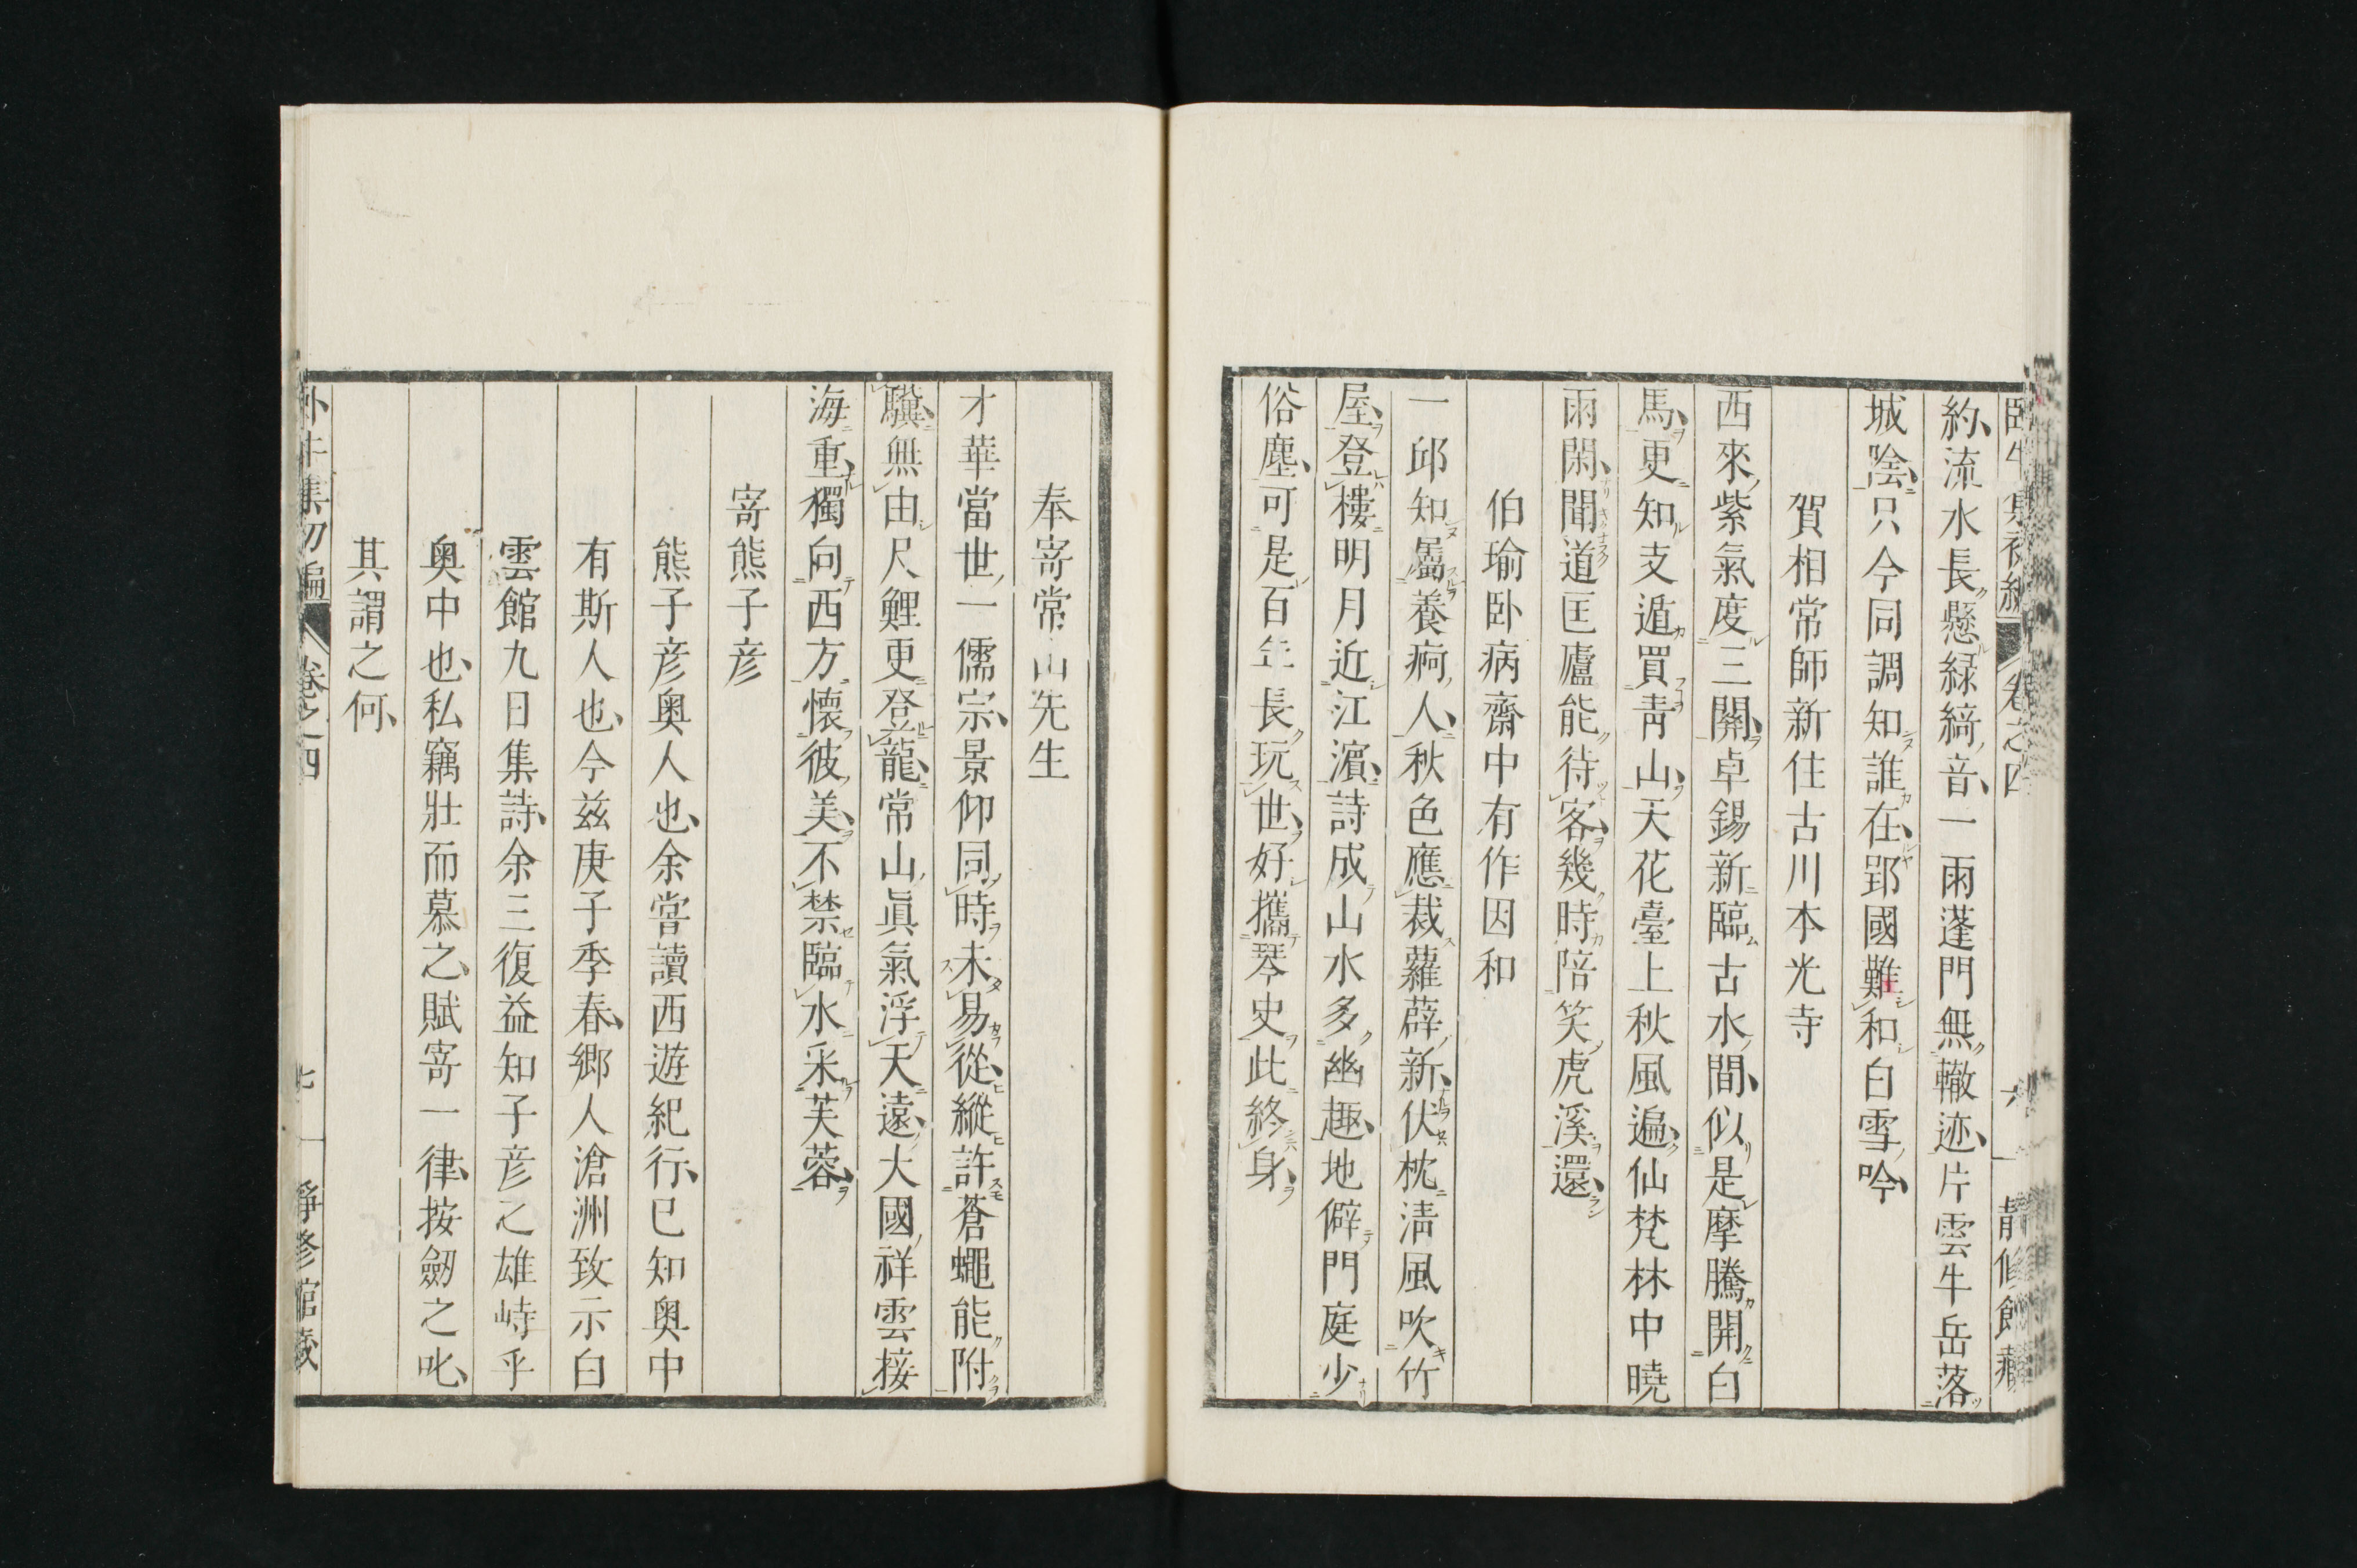 約流水長懸緑綺音一雨蓬門無轍迹片雲牛岳落
城陰只今同調知誰在郢國難和白雪吟
賀相常師新住古川本光寺
西來紫氣度三關卓錫新臨古水間似是摩騰開白
馬更知支遁買青山天花臺上秋風遍仙梵林中曉
雨閑聞道匡廬能待客幾時陪笑虎溪還
伯瑜卧病齋中有作因和
一邱知屬養痾人秋色應裁蘿薜新伏枕清風吹竹
屋登樓明月近江濵詩成山水多幽趣地僻門庭少
俗塵可是百年長玩世好攜琴史此終身
奉寄常山先生
才華當世一儒宗景仰同時未易從縱許蒼蠅能附
驥無由尺鯉更登龍常山眞氣浮天遠大國祥雲接
海重獨向西方懷彼美不禁臨水采芙蓉
寄熊子彦
熊子彦奥人也余嘗讀西遊紀行已知奥中
有斯人也今兹庚子季春郷人滄洲致示白
雲館九日集詩余三復益知子彦之雄峙乎
奥中也私竊壯而慕之賦寄一律按劒之叱
其謂之何
卷之四